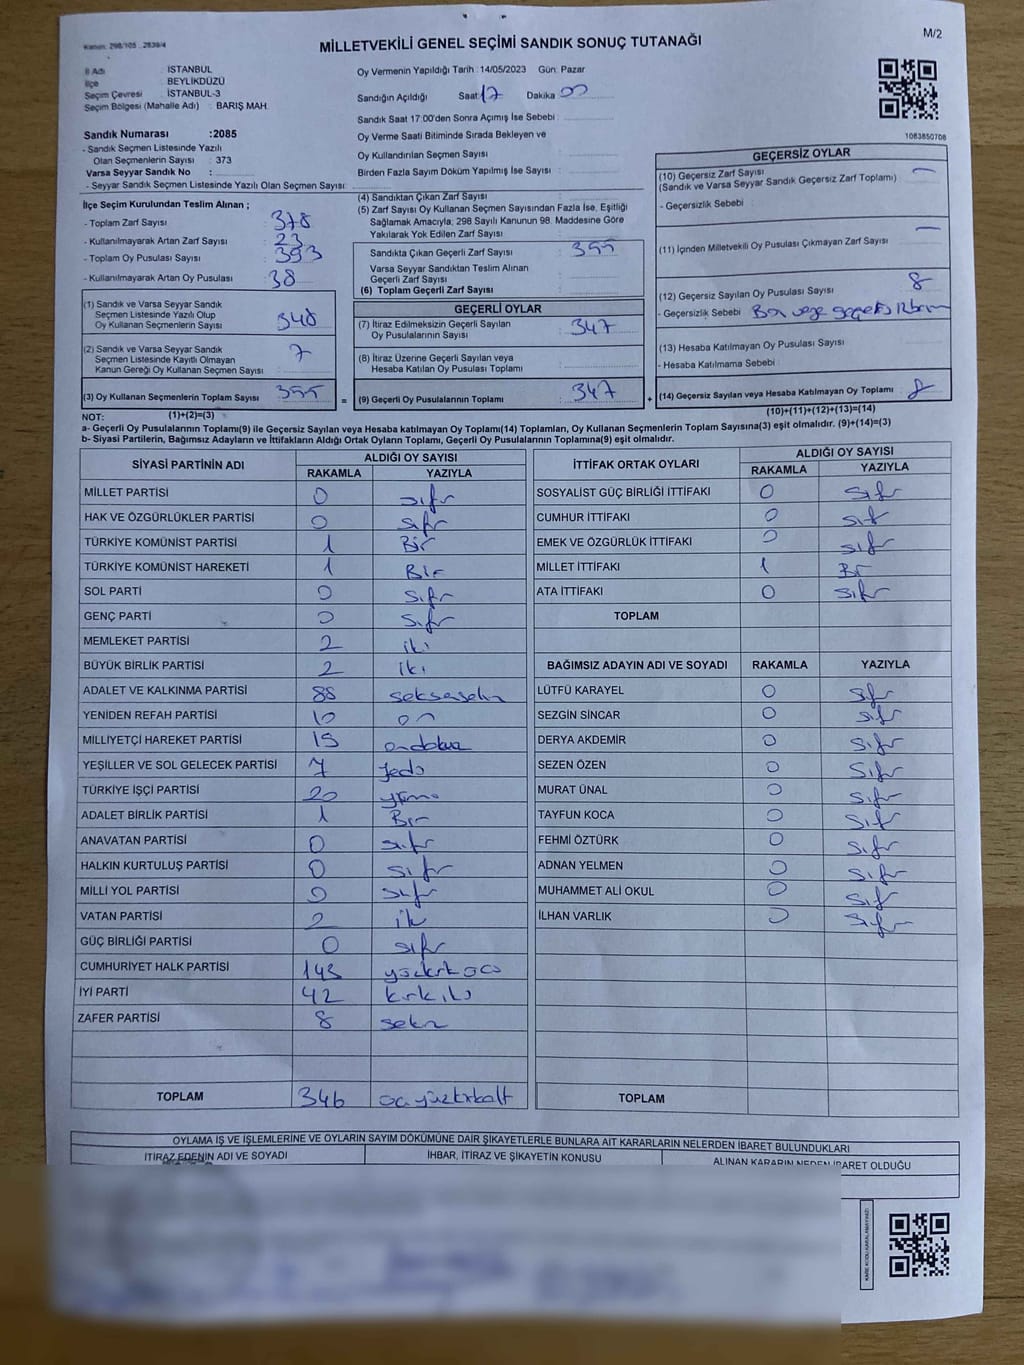 Kanun: 298/105 , 2839/4
M/2
MİLLETVEKİLİ GENEL SEÇİMİ SANDIK SONUÇ TUTANAĞI
İl Adı : İSTANBUL
İlçe : BEYLİKDÜZÜ
Seçim Çevresi : İSTANBUL-3
Seçim Bölgesi (Mahalle Adı) : BARIŞ MAH.
Sandık Numarası :2085
- Sandık Seçmen Listesinde Yazılı
Olan Seçmenlerin Sayısı : 373
Varsa Seyyar Sandık No :
- Seyyar Sandık Seçmen Listesinde Yazılı Olan Seçmen Sayısı:
Oy Vermenin Yapıldığı Tarih : 14/05/2023 Gün: Pazar
Sandığın Açıldığı Saat: 17 Dakika : 00
Sandık Saat 17:00'den Sonra Açımış İse Sebebi :
Oy Verme Saati Bitiminde Sırada Bekleyen ve
Oy Kullandırılan Seçmen Sayısı :
Birden Fazla Sayım Döküm Yapılmış İse Sayısı :
1063850706
İlçe Seçim Kurulundan Teslim Alınan ;
- Toplam Zarf Sayısı : 378
- Kullanılmayarak Artan Zarf Sayısı : 23
- Toplam Oy Pusulası Sayısı : 393
- Kullanılmayarak Artan Oy Pusulası : 38
(1) Sandık ve Varsa Seyyar Sandık
Seçmen Listesinde Yazılı Olup
Oy Kullanan Seçmenlerin Sayısı : 348
(2) Sandık ve Varsa Seyyar Sandık
Seçmen Listesinde Kayıtlı Olmayan
Kanun Gereği Oy Kullanan Seçmen Sayısı : 7
(3) Oy Kullanan Seçmenlerin Toplam Sayısı : 355
(4) Sandıktan Çıkan Zarf Sayısı :
(5) Zarf Sayısı Oy Kullanan Seçmen Sayısından Fazla İse, Eşitliği
Sağlamak Amacıyla, 298 Sayılı Kanunun 98. Maddesine Göre
Yakılarak Yok Edilen Zarf Sayısı :
Sandıkta Çıkan Geçerli Zarf Sayısı : 355
Varsa Seyyar Sandıktan Teslim Alınan
Geçerli Zarf Sayısı :
(6) Toplam Geçerli Zarf Sayısı :
GEÇERLİ OYLAR
(7) İtiraz Edilmeksizin Geçerli Sayılan
Oy Pusulalarının Sayısı : 347
(8) İtiraz Üzerine Geçerli Sayılan veya
Hesaba Katılan Oy Pusulası Toplamı :
= (9) Geçerli Oy Pusulalarının Toplamı : 347
GEÇERSİZ OYLAR
(10) Geçersiz Zarf Sayısı : —
(Sandık ve Varsa Seyyar Sandık Geçersiz Zarf Toplamı)
- Geçersizlik Sebebi :
(11) İçinden Milletvekili Oy Pusulası Çıkmayan Zarf Sayısı : —
(12) Geçersiz Sayılan Oy Pusulası Sayısı : 8
- Geçersizlik Sebebi :
(13) Hesaba Katılmayan Oy Pusulası Sayısı :
- Hesaba Katılmama Sebebi :
+ (14) Geçersiz Sayılan veya Hesaba Katılmayan Oy Toplamı : 8
NOT: (1)+(2)=(3)
(10)+(11)+(12)+(13)=(14)
a- Geçerli Oy Pusulalarının Toplamı(9) ile Geçersiz Sayılan veya Hesaba katılmayan Oy Toplamı(14) Toplamları, Oy Kullanan Seçmenlerin Toplam Sayısına(3) eşit olmalıdır. (9)+(14)=(3)
b- Siyasi Partilerin, Bağımsız Adayların ve İttifakların Aldığı Ortak Oyların Toplamı, Geçerli Oy Pusulalarının Toplamına(9) eşit olmalıdır.
SİYASİ PARTİNİN ADI ALDIĞI OY SAYISI
RAKAMLA YAZIYLA
MİLLET PARTİSİ 0 sıfır
HAK VE ÖZGÜRLÜKLER PARTİSİ 0 sıfır
TÜRKİYE KOMÜNİST PARTİSİ 1 Bir
TÜRKİYE KOMÜNİST HAREKETİ 1 Bir
SOL PARTİ 0 sıfır
GENÇ PARTİ 0 sıfır
MEMLEKET PARTİSİ 2 iki
BÜYÜK BİRLİK PARTİSİ 2 iki
ADALET VE KALKINMA PARTİSİ 88 seksensekiz
YENİDEN REFAH PARTİSİ 10 on
MİLLİYETÇİ HAREKET PARTİSİ 19 ondokuz
YEŞİLLER VE SOL GELECEK PARTİSİ 7 yedi
TÜRKİYE İŞÇİ PARTİSİ 20 yirmi
ADALET BİRLİK PARTİSİ 1 Bir
ANAVATAN PARTİSİ 0 sıfır
HALKIN KURTULUŞ PARTİSİ 0 sıfır
MİLLİ YOL PARTİSİ 0 sıfır
VATAN PARTİSİ 2 iki
GÜÇ BİRLİĞİ PARTİSİ 0 sıfır
CUMHURİYET HALK PARTİSİ 143
İYİ PARTİ 42 kırkiki
ZAFER PARTİSİ 8 sekiz
TOPLAM 346 üçyüzkırkaltı
İTTİFAK ORTAK OYLARI ALDIĞI OY SAYISI
RAKAMLA YAZIYLA
SOSYALİST GÜÇ BİRLİĞİ İTTİFAKI 0 sıfır
CUMHUR İTTİFAKI 0 sıfır
EMEK VE ÖZGÜRLÜK İTTİFAKI 0 sıfır
MİLLET İTTİFAKI 1 Bir
ATA İTTİFAKI 0 sıfır
TOPLAM
BAĞIMSIZ ADAYIN ADI VE SOYADI RAKAMLA YAZIYLA
LÜTFÜ KARAYEL 0 sıfır
SEZGİN SİNCAR 0 sıfır
DERYA AKDEMİR 0 sıfır
SEZEN ÖZEN 0 sıfır
MURAT ÜNAL 0 sıfır
TAYFUN KOCA 0 sıfır
FEHMİ ÖZTÜRK 0 sıfır
ADNAN YELMEN 0 sıfır
MUHAMMET ALİ OKUL 0 sıfır
İLHAN VARLIK 0 sıfır
TOPLAM
OYLAMA İŞ VE İŞLEMLERİNE VE OYLARIN SAYIM DÖKÜMÜNE DAİR ŞİKAYETLERLE BUNLARA AİT KARARLARIN NELERDEN İBARET BULUNDUKLARI
İTİRAZ EDENİN ADI VE SOYADI İHBAR, İTİRAZ VE ŞİKAYETİN KONUSU ALINAN KARARIN NEDEN İBARET OLDUĞU